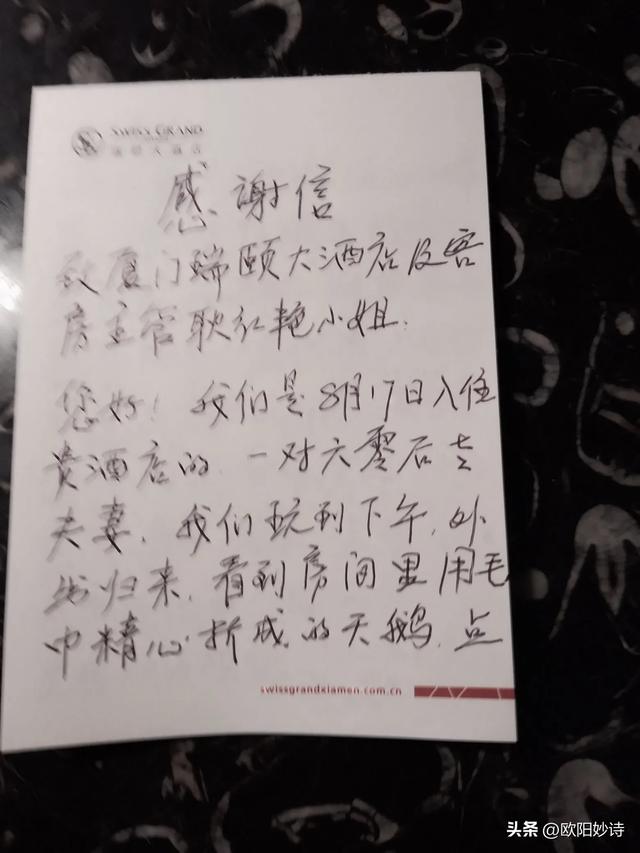 SWISS GRAND
感谢信
致厦门瑞颐大酒店及客
房主管耿红艳小姐.
您好！我们是8月17日入住
贵酒店的.一对六零后老
夫妻.我们玩到下午.外
出归来.看到房间里用毛
巾精心折成的天鹅.点
swissgrandxiamen.com.cn
头条 @欧阳妙诗